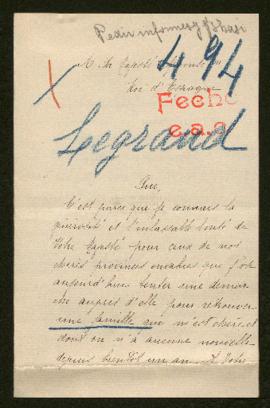 Pedir informes
494
A Sa Majesté
Roi d'Espagne
Fecho
e.a.a.
Legrand
Sire,
C'est parce que je connais la
générosité et l'inlassable bonté de
Votre Majesté pour ceux de nos
chères provinces envahies que j'ose
aujourd'hui tenter une démar
che auprès d'elle pour retrouver
une famille qui m'est chère et
dont on n'a aucune nouvelle
depuis bientôt un an. A Votre